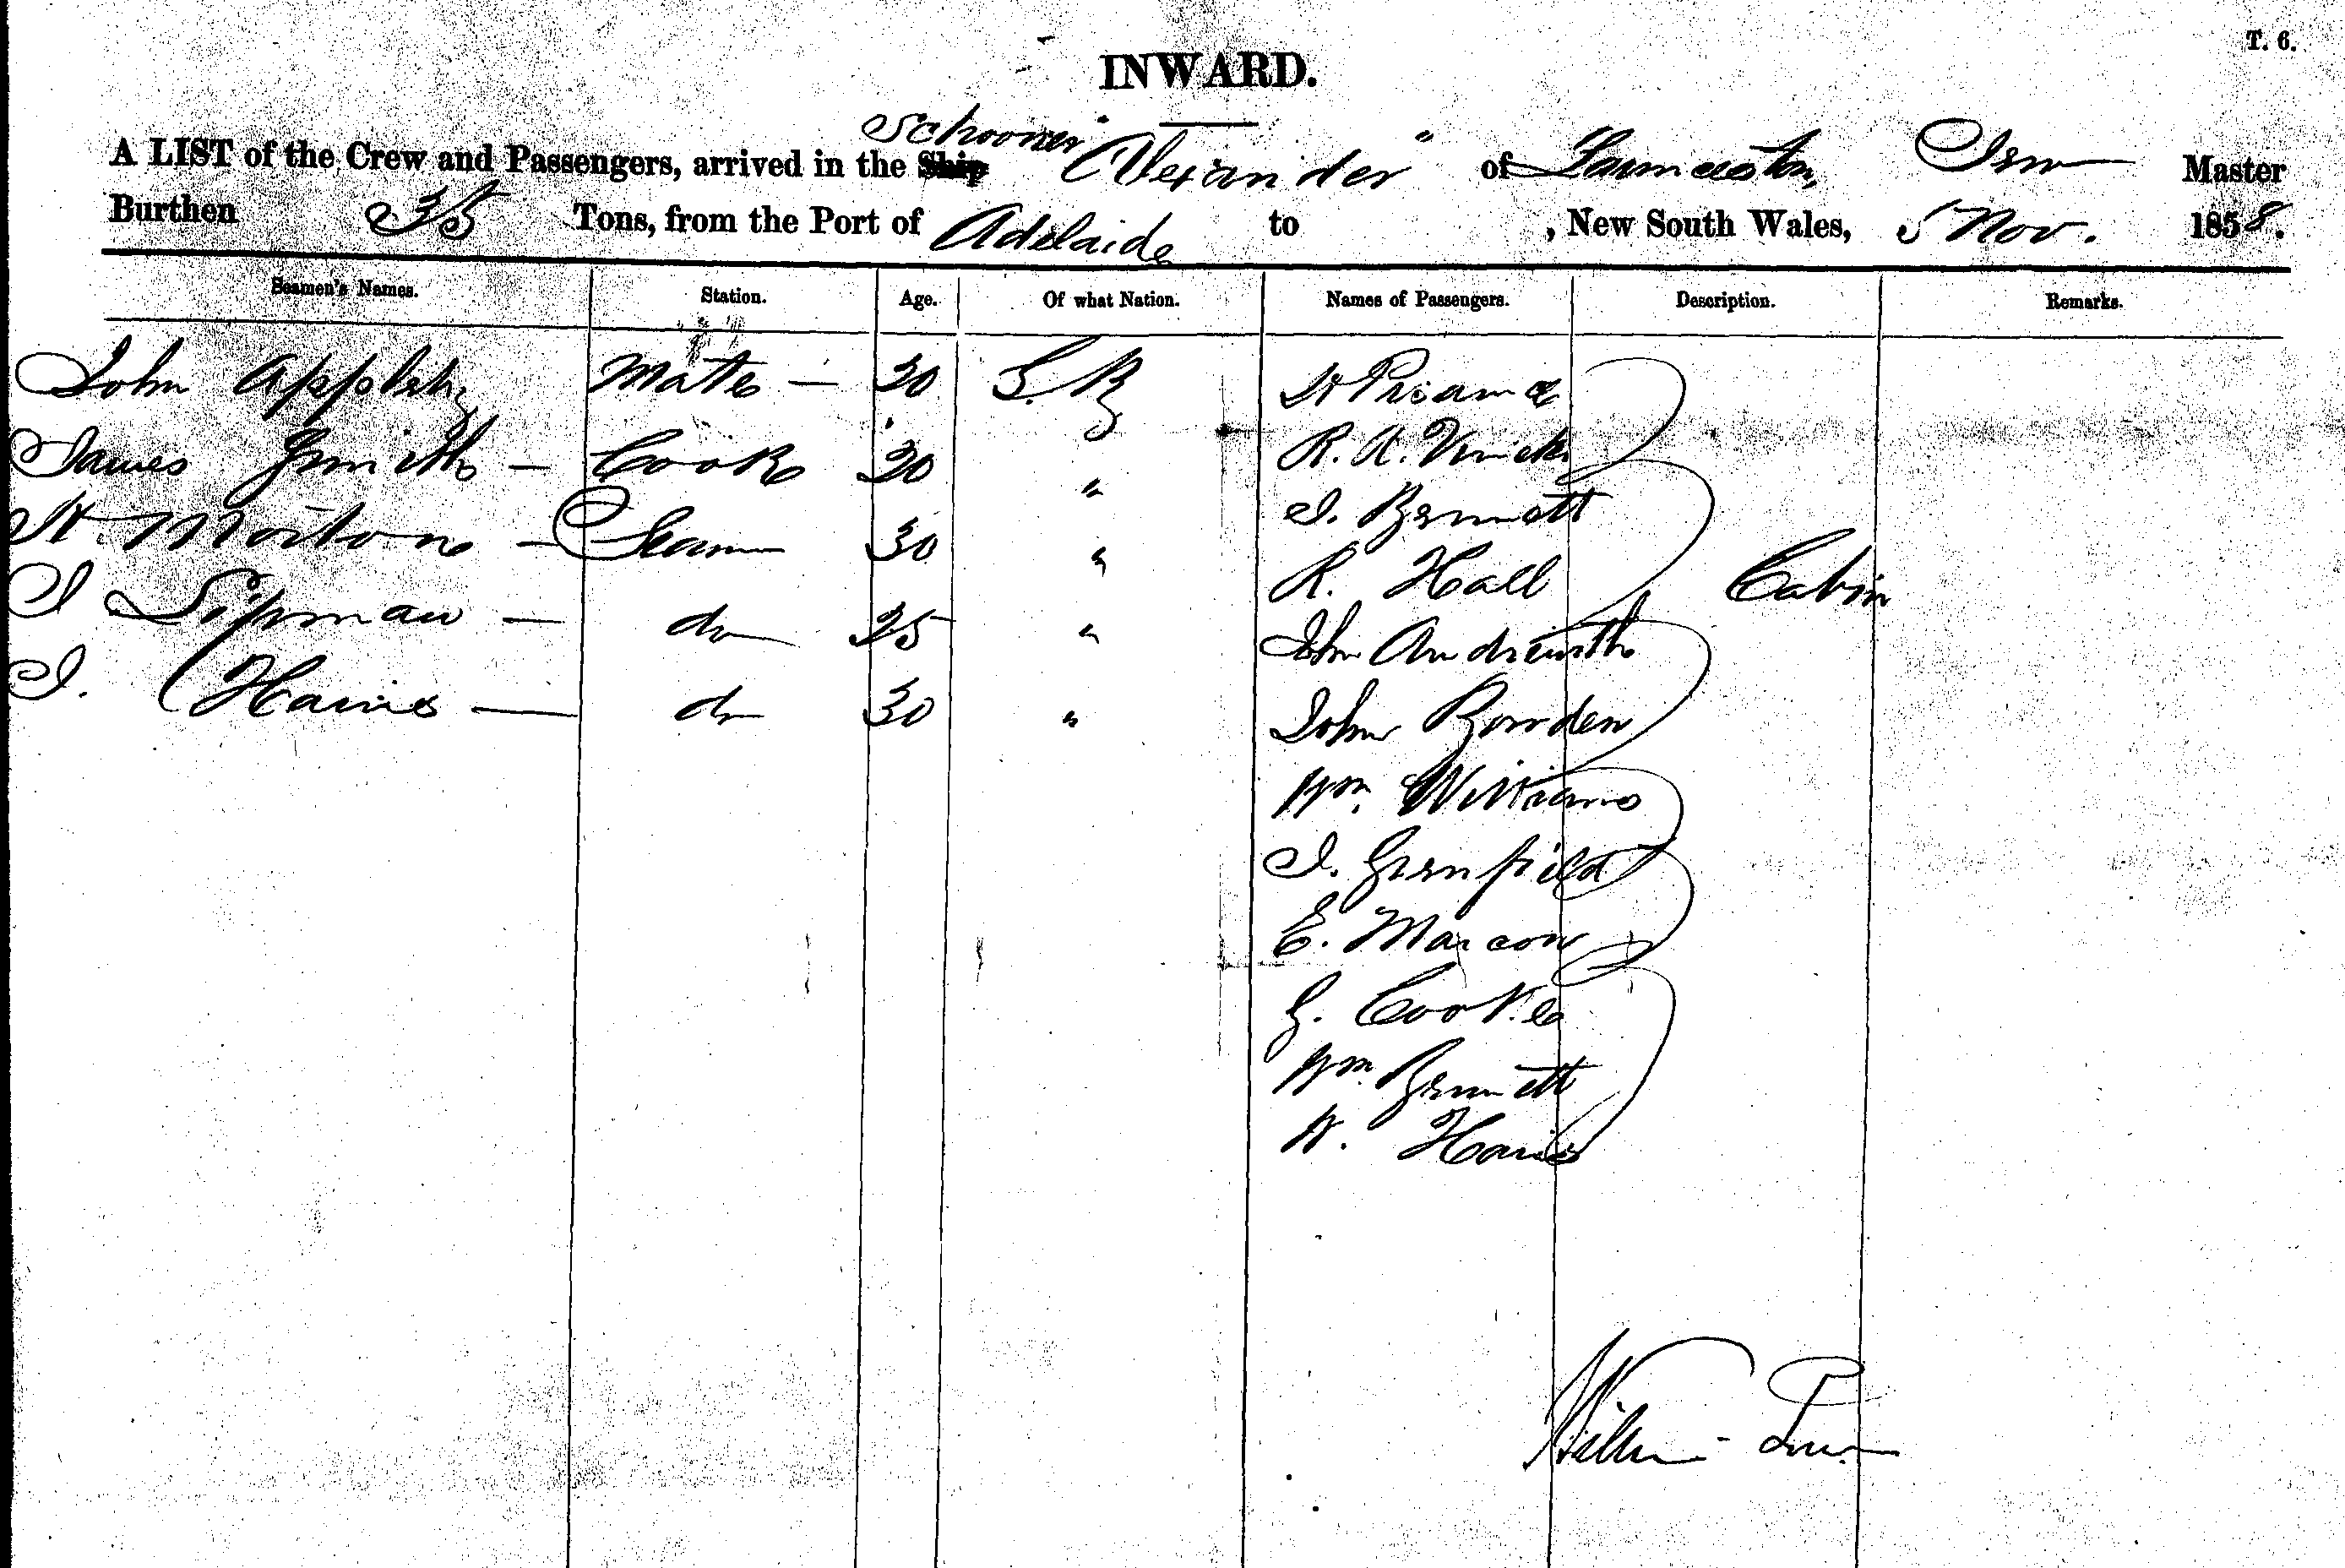 T. 6.
INWARD.
A LIST of the Crew and Passengers, arrived in the Ship Schooner "Alexander" of Launceston, Master
Burthen 35 Tons, from the Port of Adelaide to , New South Wales, 5 Nov. 1858.
Seamen's Names. Station. Age. Of what Nation. Names of Passengers. Description. Remarks.
John Appleby Mate — 30 G. B
James Smith — Cook 20 "
H. Morton — Seam 30 "
J Lipman — do 25 "
J. Haines — do 30 "
R. R.
J. Bennett
R. Hall
John
John Bowden
Wm. Williams
J. Grenfield
E. Marcow
G. Cooke
Wm. Bennett
H.
Cabin